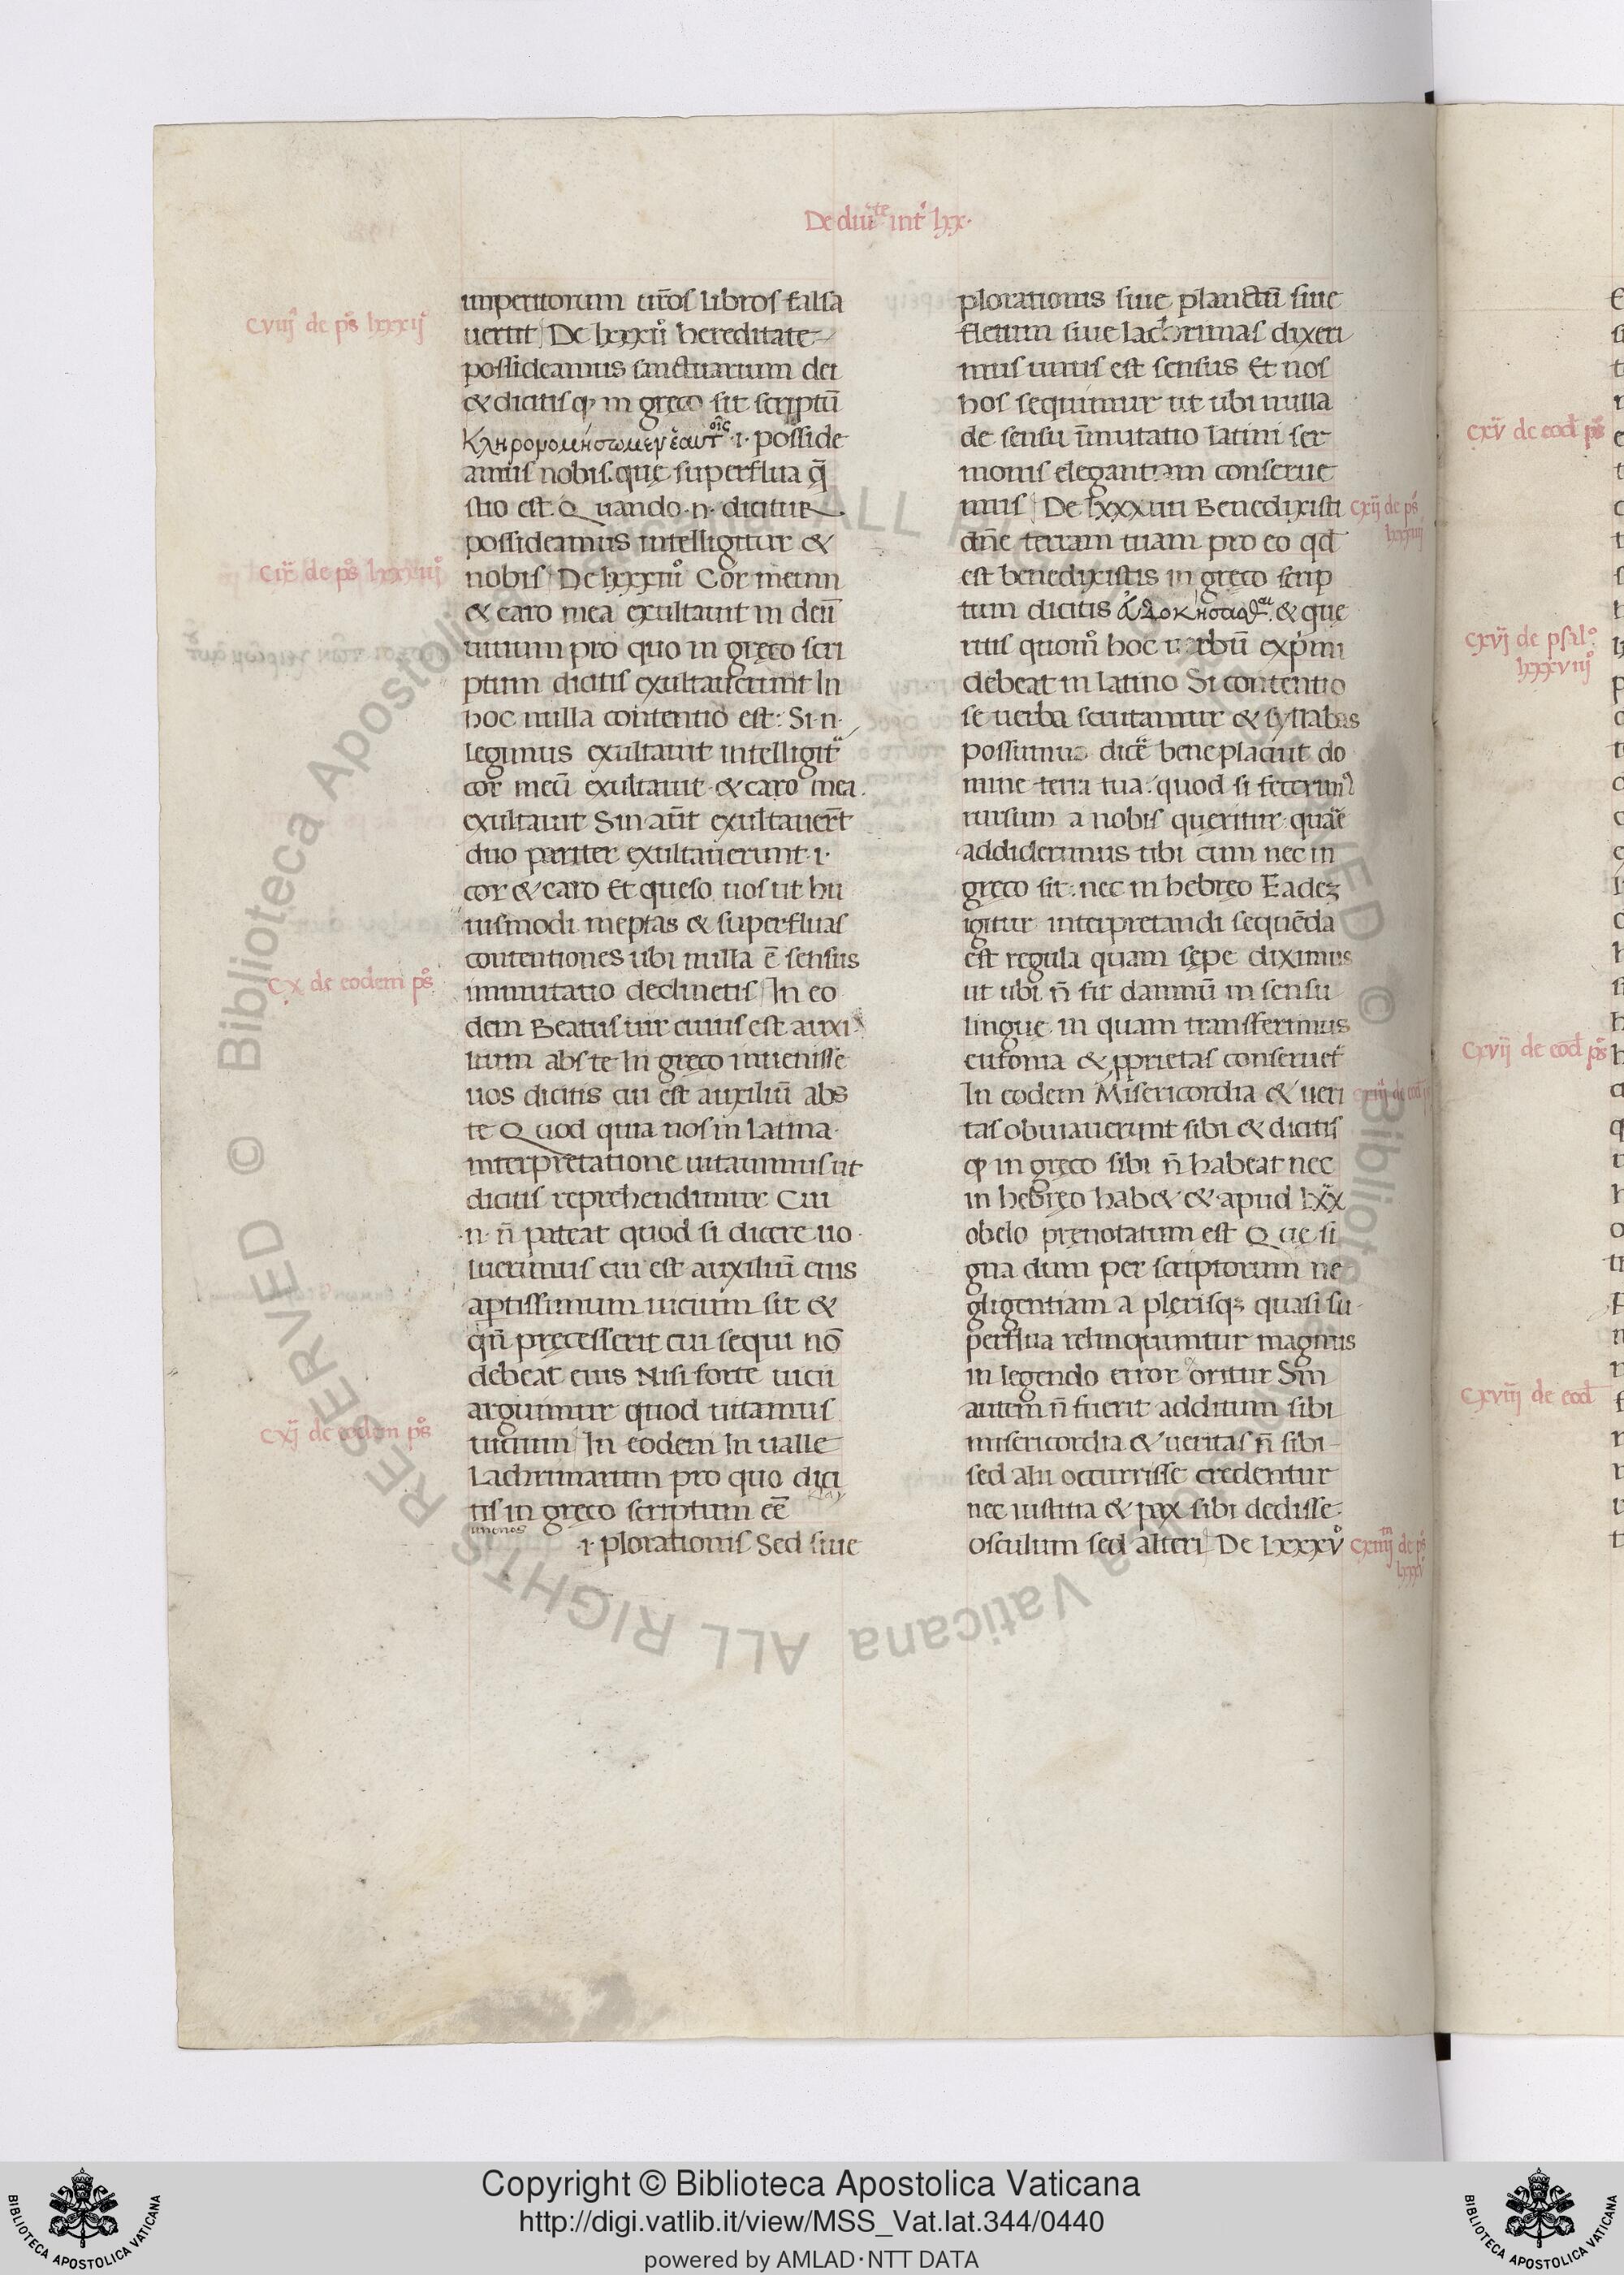 De diui͞te int͛ lxx·
cviij° de ps̊ lxxxij°
imperitorum ur̄os libros falsa
uertit De lxxxii° hereditate
possideamus sanctuarium dei
& dicitis qꝫ in greco sit scriptū
κληρονομήσωμεν ἑαυτοῖς ·i· posside
amus nobis. que superflua q̄
stio est Quando ·n· dicitur
possideamus intelligitur &
cix de ps̊ lxxxiij°
nobis De lxxxiii° Cor meum
& caro mea exultauit in deū
uiuum pro quo in greco scri
ptum dicitis exultauerunt In
hoc nulla contentio est: Si ·n·
legimus exultauit intelligit̄
cor meū exultauit · & caro mea
exultauit Sin aūt exultauer̄t
duo pariter exultauerunt ·i·
cor & caro Et queso uos ut hu
iusmodi ineptas & superfluas
contentiones ubi nulla ē sensus
cx de eodem ps̊
immutatio declinetis In eo
dem Beatus uir cuius est auxi
lium abs te In greco inuenisse
uos dicitis cui est auxiliū abs
te Quod quia nos in latina
interpretatione uitauimus ut
dicitis reprehendimur Cui
·n· n̄ pateat quod si dicere uo
luerimus cui est auxiliū eius
aptissimum uicium sit &
qn̄ precesserit cui sequi nō
debeat eius Nisi forte uicii
arguimur quod uitamus
cxj de eodem ps̊
uicium In eodem In ualle
lachrimarum pro quo dici
tis in greco scriptum eē
·i· plorationis Sed siue
plorationis siue planctū siue
fletum siue lachrimas dixeri
mus unus est sensus Et nos
hos sequimur ut ubi nulla
de sensu īmutatio latini ser
monis elegantiam conserue
mus De lxxxiiii Benedixisti
cxij de ps̊ lxxxiiij
dn̄e terram tuam pro eo qd̄
est benedixistis in greco scrip
tum dicitis & que
ritis quom̊ hoc uerbū exp̍mi
debeat in latino Si contentio
se uerba scrutamur & syllabas
possumus dicē bene placuit do
mine terra tua: quod si fecerim᾽
rursum a nobis queritur quāe
addiderimus tibi cum nec in
greco sit: nec in hebreo Eadeꝫ
igitur interpretandi sequēda
est regula quam sepe diximus
ut ubi n̄ fit damnū in sensu
lingue in quam transferimus
eufonia & ꝓprietas conseruet̄
In eodem Misericordia & ueri
cxiij de eod
tas obuiauerunt sibi & dicitis
qꝫ in greco sibi n̄ habeat nec
in hebreo hab& & apud lxx
obelo prenotatum est Que si
gna dum per scriptorum ne
gligentiam a plerisqꝫ quasi su
perflua relinquuntur magnus
in legendo error oritur Sin
autem n̄ fuerit additum sibi
misericordia & ueritas n̄ sibi
sed alii occurrisse credentur
nec iustitia & pax sibi dedisse
osculum sed alteri De lxxxv°
cxiiij de ps̊ lxxxv
cxv de eod ps̊
cxvj de psal°: lxxxviij°
cxvij de eod ps̊
cxviij de eod
Copyright © Biblioteca Apostolica Vaticana
http://digi.vatlib.it/view/MSS_Vat.lat.344/0440
powered by AMLAD·NTT DATA